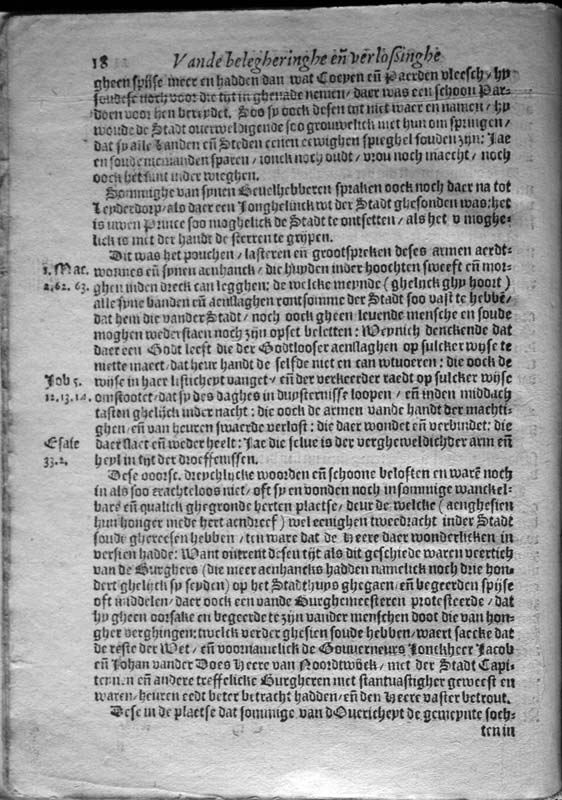 18 Vande belegheringhe eñ verlossinghe
gheen spijse meer en hadden dan wat Coeyen eñ Paerden vleesch/ hy
soudese noch voor die tijt in ghenade nemen/ daer was een schoon Par-
doen voor hen bereydet. Soo sy oock desen tijt niet waer en namen/ hy
woude de Stadt overweldigende soo grouwelick met hun om springen/
dat sy alle Landen eñ Steden eenen eewighen spieghel souden zijn: Jae
en soude niemanden sparen/ ionck noch oudt/ vrou noch maecht/ noch
oock het kint inder wieghen.
Sommighe van synen Bevelhebberen spraken oock noch daer na tot
Leyderdorp/ als daer een Jonghelinck wt der Stadt ghesonden was: het
is uwen Prince soo moghelick de Stadt te ontsetten/ als het v moghe-
lick is met der handt de sterren te grijpen.
Dit was het pouchen/ lasteren eñ grootspreken deses armen aerdt-
1. Mac. wormes eñ synen aenhanck/ die huyden inder hoochten sweeft eñ mor-
2. 62. 63. ghen inden dreck can legghen: de welcke meynde (ghelijck ghy hoort)
alle syne banden eñ aenslaghen rontsomme der Stadt soo vast te hebbē/
dat hem die vander Stadt/ noch oock gheen levende mensche en soude
moghen wederstaen noch zijn opset beletten: Weynich denckende dat
daer een Godt leeft die der Godtlooser aenslaghen op sulcker wyse te
niette maect/ dat heur handt de selfde niet en can wtvoeren: die oock de
Job 5. wijse in haer listicheyt vanget/ eñ der verkeerder raedt op sulcker wijse
12. 13. 14. omstootet/ dat sy des daghes in duysternisse loopen/ eñ inden middach
tasten ghelijck inder nacht: die oock de armen vande handt der machti-
ghen/ eñ van heuren swaerde verlost: die daer wondet eñ verbindet: die
Esaie daer slaet eñ weder heelt: Jae die selve is der vergheweldichder arm eñ
33. 2. heyl in tijt der droeffenissen.
Dese voorsc. dreychlycke woorden eñ schoone beloften en warē noch
in als soo crachteloos niet/ oft sy en vonden noch in sommige wanckel-
bare eñ qualick ghegronde herten plaetse/ deur de welcke (aenghesien
hun honger mede hert aendreef) wel eenighen tweedracht inder Stadt
soude ghereesen hebben/ ten ware dat de Heere daer wonderlicken in
versien hadde: Want ontrent desen tijt als dit geschiede waren veertich
van de Burghers (die meer aenhancks hadden namelick noch drie hon-
dert ghelijck sy seyden) op het Stadthuys ghegaen/ eñ begeerden spijse
oft middelen/ daer oock een vande Burghemeesteren protesteerde/ dat
hy gheen oorsake en begeerde te zijn vander menschen doot die van hon-
gher verghingen: twelck verder ghesien soude hebben/ waert saecke dat
de reste der Wet/ eñ voornamelick de Gouverneurs Jonckheer Jacob
eñ Johan vander Does Heere van Noordtwöck/ met der Stadt Capi-
teynen eñ andere treffelicke Burgheren niet stantvastigher geweest en
waren/ heuren eedt beter betracht hadden/ eñ den Heere vaster betrout.
Dese in de plaetse dat sommige van d'Overicheyt de gemeynte soch-
ten in